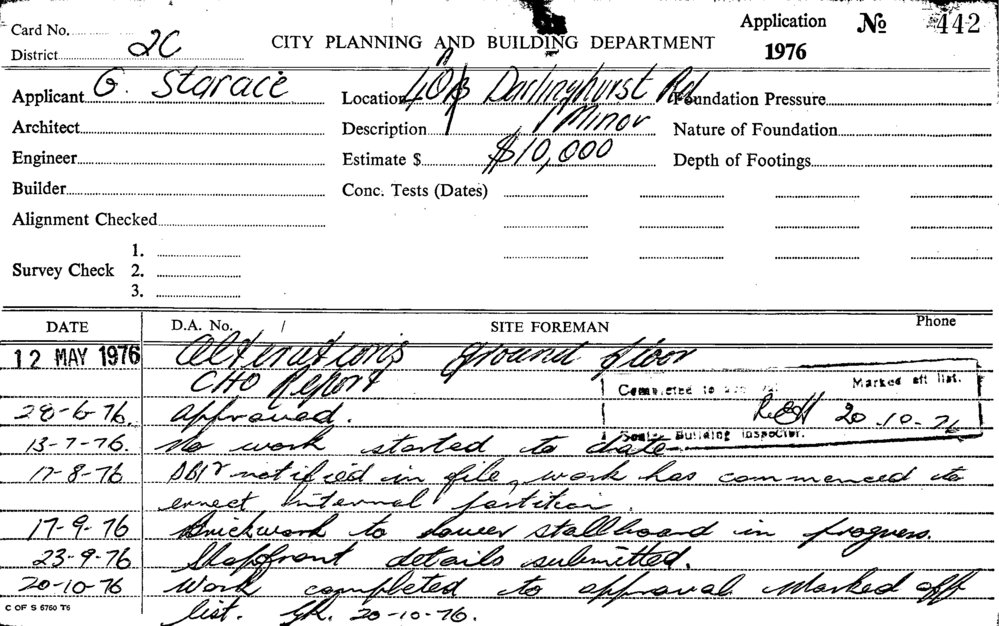 Card No.
District 2C
CITY PLANNING AND BUILDING DEPARTMENT
Application
1976
№ 442
Applicant G. Starace
Location 40B Darlinghurst Rd
Foundation Pressure
Architect
Description Minor
Nature of Foundation
Engineer
Estimate $ $10,000
Depth of Footings
Builder
Conc. Tests (Dates)
Alignment Checked
Survey Check 1.
2.
3.
DATE D.A. No. / SITE FOREMAN Phone
12 MAY 1976 Alterations ground floor
CHO Report
Completed to Marked off list.
20.10.76
Senior Building Inspector.
28-6-76. approved.
13-7-76. No work started to date
17-8-76 notified in file, work has commenced to
errect internal partition.
17-9-76 Brickwork to lower stallboard in progress.
23-9-76 Shopfront details submitted.
20-10-76 Work completed to approval Marked off
list. 20-10-76.
C OF S 6760 T6